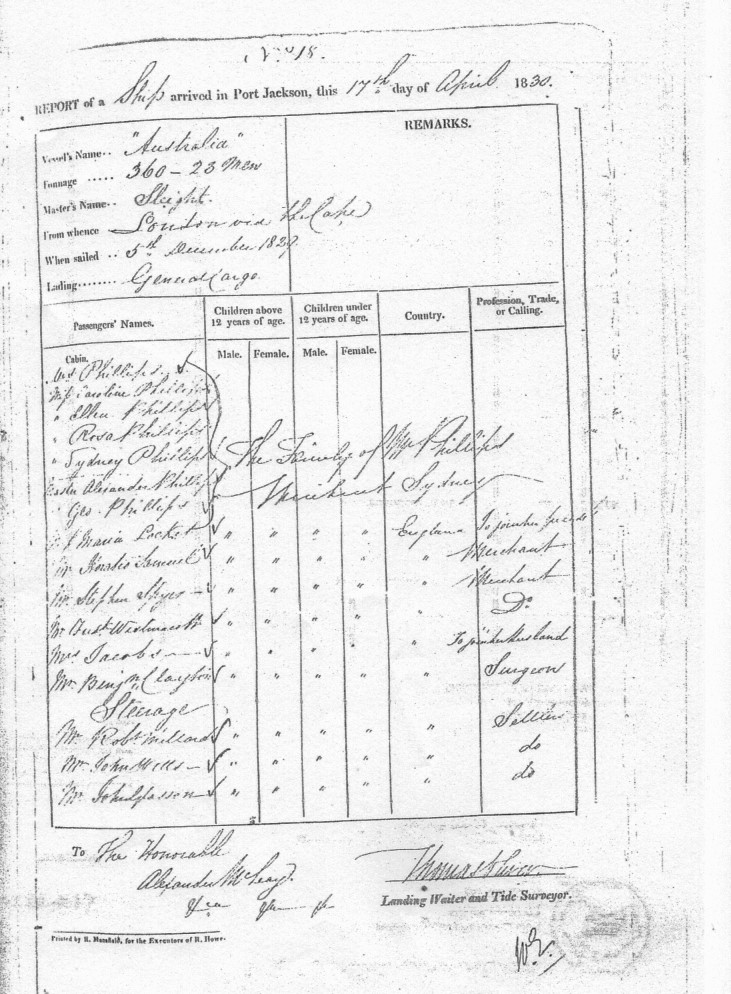 No 18.
REPORT of a Ship arrived in Port Jackson, this 17th day of April 1830.
REMARKS.
Vessel's Name .. "Australia"
Tonnage ..... 360 - 23 Men
Master's Name .. Sleight.
From whence London via the Cape
When sailed .. 5th December 1829.
Lading ........ General Cargo
Passengers' Names.
Children above 12 years of age.
Children under 12 years of age.
Country.
Profession, Trade, or Calling.
Male. Female. Male. Female.
Cabin.
Mrs Phillips
Miss Caroline Phillips
" Ellen Phillips
" Rosa Phillips
" Sydney Phillips
The Family of Mr Phillips
Master Alexander Phillips
Merchant Sydney
" Geo. Phillips
Maria Locket " " " " England To join her friends
Mr Horatio Samuel " " " " " Merchant
Mr Stephen " " " " " Merchant
Mr " " " " " Do
Mrs Jacobs " " " " " To join her Husband
Mr Benjn Clayton " " " " " Surgeon
Steerage
Mr Robt Millard " " " " " Settler
Mr John Wills " " " " " do
Mr John " " " " " do
To The Honorable
Alexander McLeay
Thomas
Landing Waiter and Tide Surveyor.
Printed by R. Mansfield, for the Executors of R. Howe.